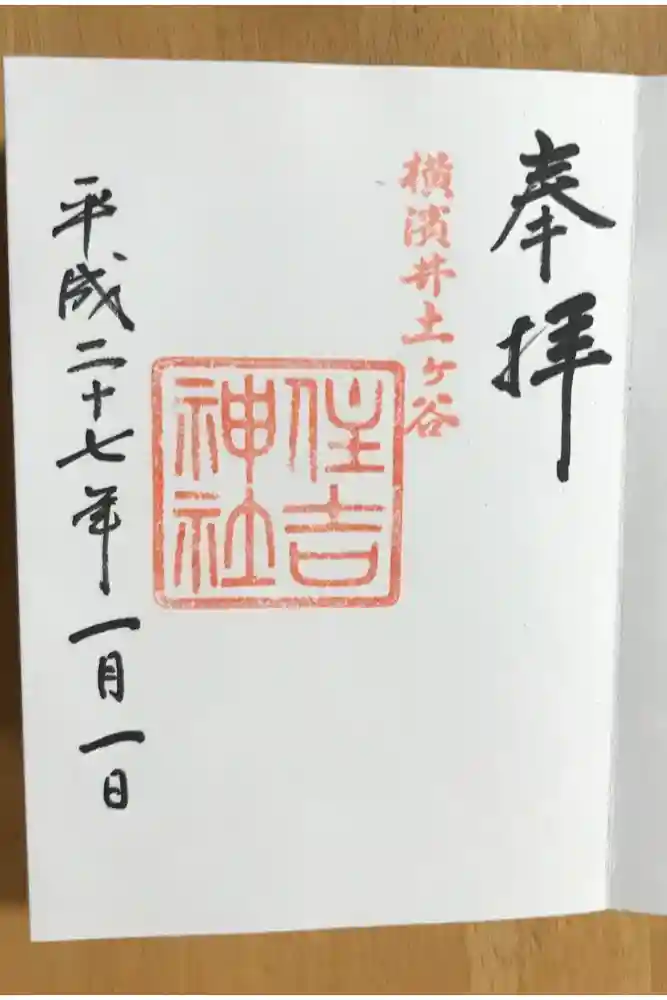 奉拝
横濱井土ヶ谷
住吉
神社
平成二十七年一月一日